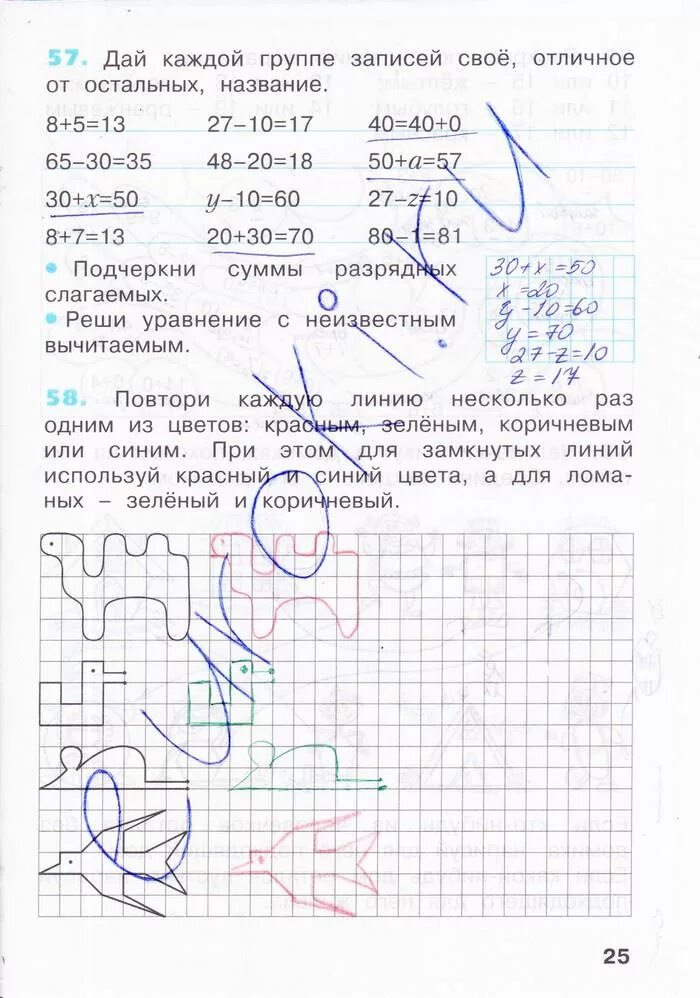 57. Дай каждой группе записей своё, отличное
от остальных, название.
8+5=13 27−10=17 40=40+0
65−30=35 48−20=18 50+a=57
30+x=50 y−10=60 27−z=10
8+7=13 20+30=70 80−1=81
• Подчеркни суммы разрядных
слагаемых.
• Реши уравнение с неизвестным
вычитаемым.
30+x=50
x=20
y−10=60
y=70
27−z=10
z=17
58. Повтори каждую линию несколько раз
одним из цветов: красным, зелёным, коричневым
или синим. При этом для замкнутых линий
используй красный и синий цвета, а для лома-
ных – зелёный и коричневый.
25